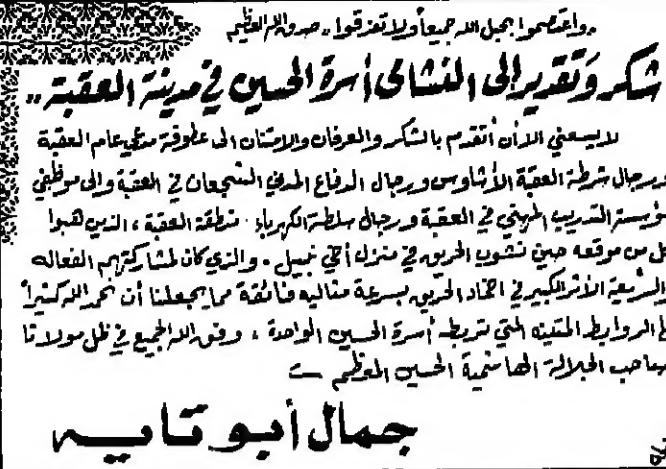 ،،واعتصموا بحبل الله جميعاً ولا تفرقوا،، صدق الله العظيم
شكر وتقدير إلى النشامى أسرة الحسين في مدينة العقبة ،،
لا يسعني الا أن أتقدم بالشكر والعرفان والامتنان الى عطوفة مدعي عام العقبة
ورجال شرطة العقبة الأشاوس ورجال الدفاع المدني الشجعان في العقبة والى موظفي
مؤسسة التدريب المهني في العقبة ورجال سلطة الكهرباء منطقة العقبة ، الذين هبوا
كل من موقعه حين نشوب الحريق في منزل أخي نبيل . والذي كان لمشاركتهم الفعاله
والسريعة الأثر الكبير في اخماد الحريق بسرعة مثاليه فائقة مما يجعلنا أن نحمد الله كثيراً
الروابط المتينه التي تربط أسرة الحسين الواحدة ، وفق الله الجميع في ظل مولانا
صاحب الجلالة الهاشمية الحسين المعظم
جمال أبو تايه